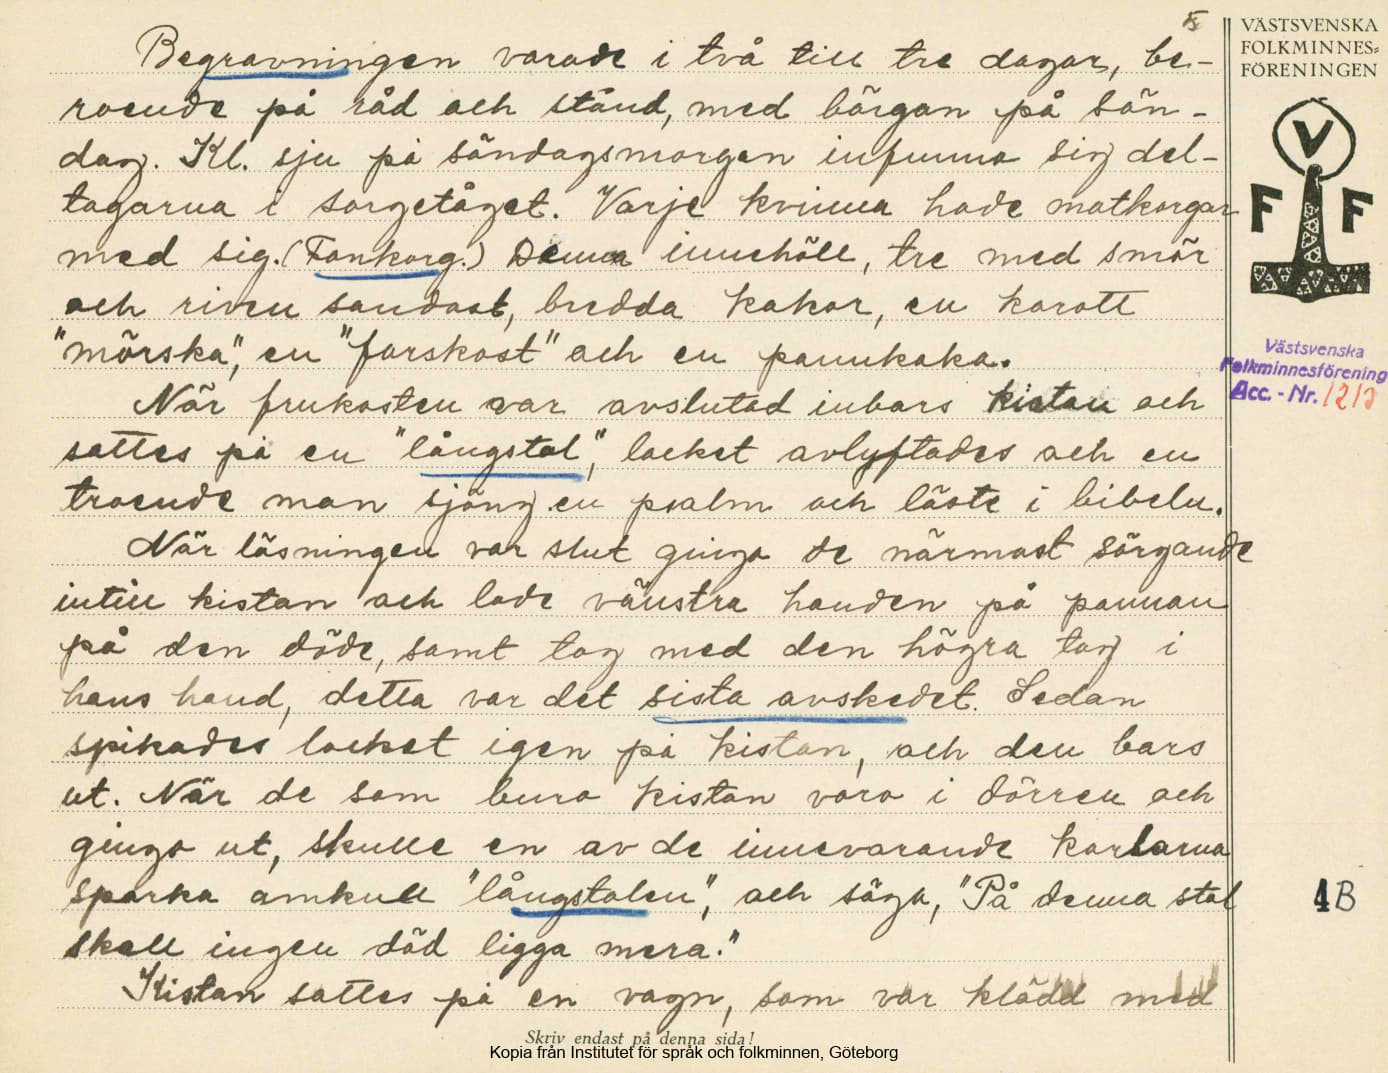 5
VÄSTSVENSKA
FOLKMINNES-
FÖRENINGEN
V
F F
Västsvenska
Folkminnesförening
Acc. - Nr. 1212
Begravningen varade i två till tre dagar, be-
roende på råd och stånd, med börgan på sön-
dag. Kl. sju på söndagsmorgen infunno sig del-
tagarna i sorgetåget. Varje kvinna hade matkorgar
med sig. (Fonkorg.) Denna innehöll, tre med smör
och riven sandost, bredda kakor, en karott
"mörska", en "farskost" och en pannkaka.
När frukosten var avslutad inbars kistan och
sattes på en "långstol", locket avlyftades och en
troende man sjöng en psalm och läste i bibeln.
När läsningen var slut gingo de närmast sörgande
intill kistan och lade vänstra handen på pannan
på den döde, samt tog med den högra tag i
hans hand, detta var det sista avskedet. Sedan
spikades locket igen på kistan, och den bars
ut. När de som buro kistan voro i dörren och
gingo ut, skulle en av de innevarande karlarna
sparka omkull "långstolen", och säga, "På denna stol
skall ingen död ligga mera."
Kistan sattes på en vagn, som var klädd med
4B
Skriv endast på denna sida!
Kopia från Institutet för språk och folkminnen, Göteborg